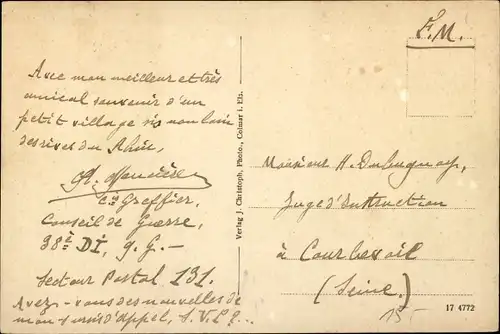 F. M.
Avec mon meilleur et très
amical souvenir d'un
petit village sis non loin
des rives du Rhin,
Cis Greffier,
Conseil de Guerre,
38e DI, q. G. -
Secteur Postal 131.
Avez-vous des nouvelles de
mon d'Appel, S.V.P ?...
Verlag J. Christoph, Photo., Colmar i. Els.
Monsieur H.
Juge d'Instruction
à Courbevoie
(Seine)
15
17 4772